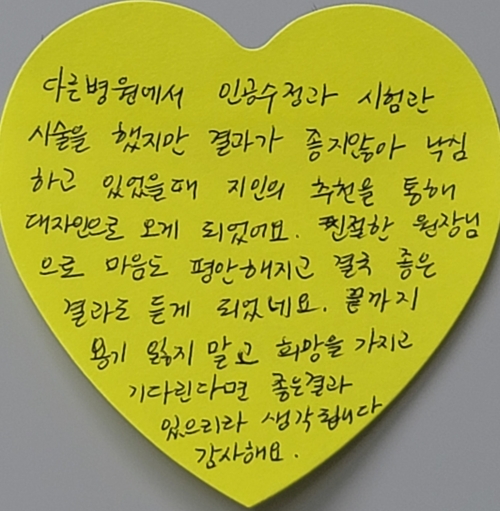 다른병원에서 인공수정과 시험관
시술을 했지만 결과가 좋지않아 낙심
하고 있었을때 지인의 추천을 통해
대자인으로 오게 되었어요. 친절한 원장님
으로 마음도 평안해지고 결국 좋은
결과도 듣게 되었네요. 끝까지
용기 잃지 말고 희망을 가지고
기다린다면 좋은결과
있으리라 생각됩니다
감사해요.